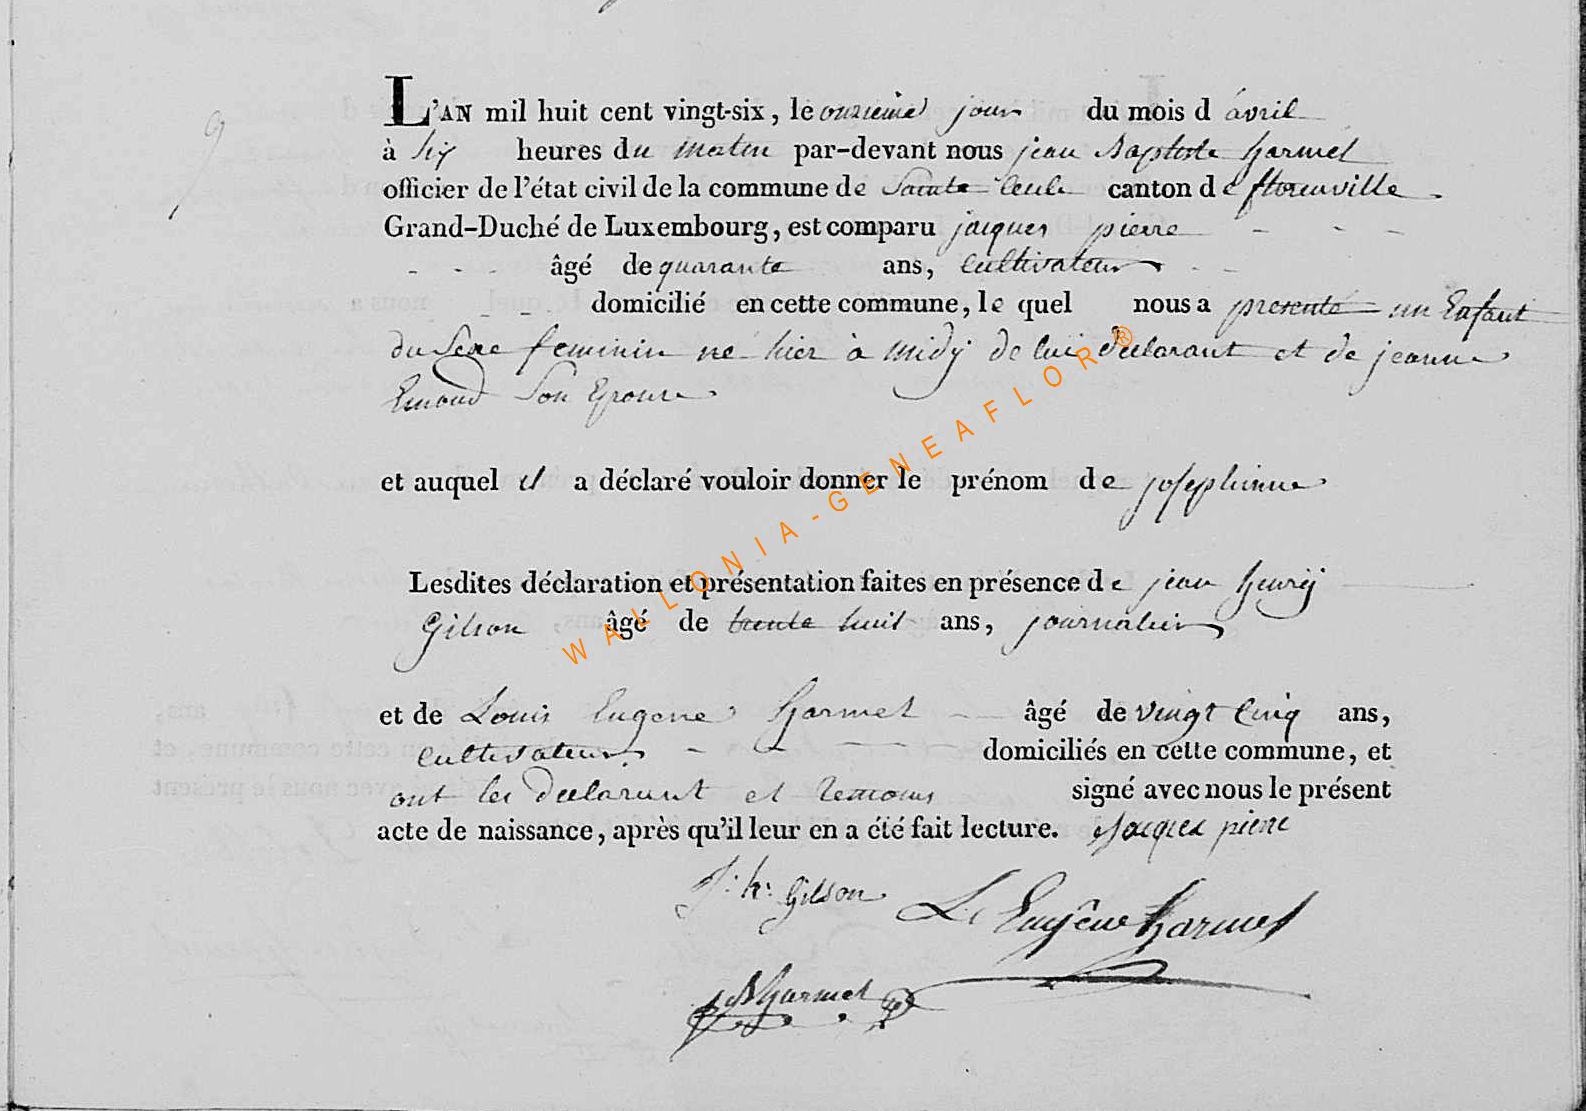 9
L'AN mil huit cent vingt-six, le onzieme jour du mois d avril
à six heures du matin par-devant nous jean Baptiste harmel
officier de l'état civil de la commune de Sainte Cecile canton de florenville
Grand-Duché de Luxembourg, est comparu jacques pierre
âgé de quarante ans, cultivateur
domicilié en cette commune, le quel nous a presenté un Enfant
du Sexe feminin né hier à midy de lui declarant et de jeanne
Emond Son Epouse
et auquel il a déclaré vouloir donner le prénom de josephinne
Lesdites déclaration et présentation faites en présence de jean henrij
Gilson âgé de trente huit ans, journalier
et de Louis Eugene harmel âgé de vingt Cinq ans,
cultivateur domiciliés en cette commune, et
ont les declarant et temoins signé avec nous le présent
acte de naissance, après qu'il leur en a été fait lecture. jacques pierre
J: h: Gilson L. Eugêne harmel
jBharmel
WALLONIA-GENEAFLOR®